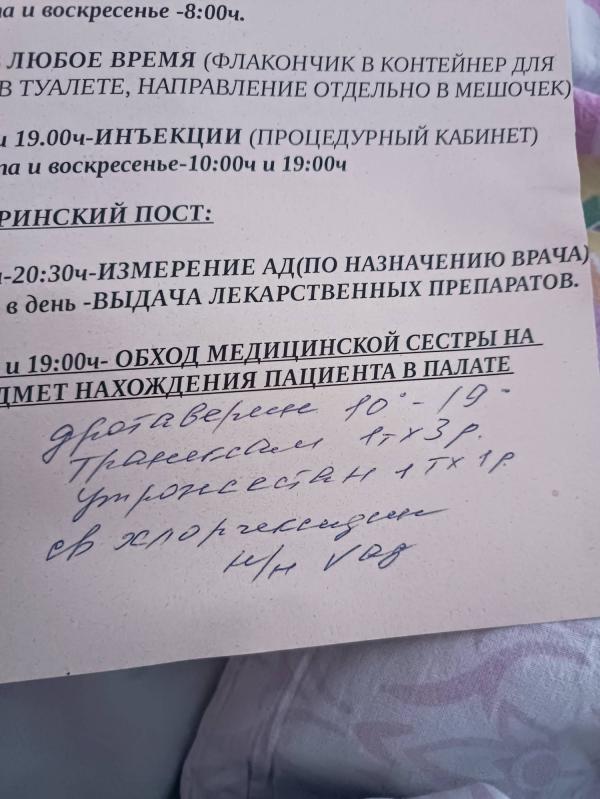 та и воскресенье -8:00ч.
ЛЮБОЕ ВРЕМЯ (ФЛАКОНЧИК В КОНТЕЙНЕР ДЛЯ
В ТУАЛЕТЕ, НАПРАВЛЕНИЕ ОТДЕЛЬНО В МЕШОЧЕК)
и 19.00ч-ИНЪЕКЦИИ (ПРОЦЕДУРНЫЙ КАБИНЕТ)
та и воскресенье-10:00ч и 19:00ч
РИНСКИЙ ПОСТ:
-20:30ч-ИЗМЕРЕНИЕ АД(ПО НАЗНАЧЕНИЮ ВРАЧА)
в день -ВЫДАЧА ЛЕКАРСТВЕННЫХ ПРЕПАРАТОВ.
и 19:00ч- ОБХОД МЕДИЦИНСКОЙ СЕСТРЫ НА
ДМЕТ НАХОЖДЕНИЯ ПАЦИЕНТА В ПАЛАТЕ
дротаверин 10°-19-
Транексам 1т х 3 р.
утрожестан 1 т х 1 р.
св хлоргексидин
н/н vag